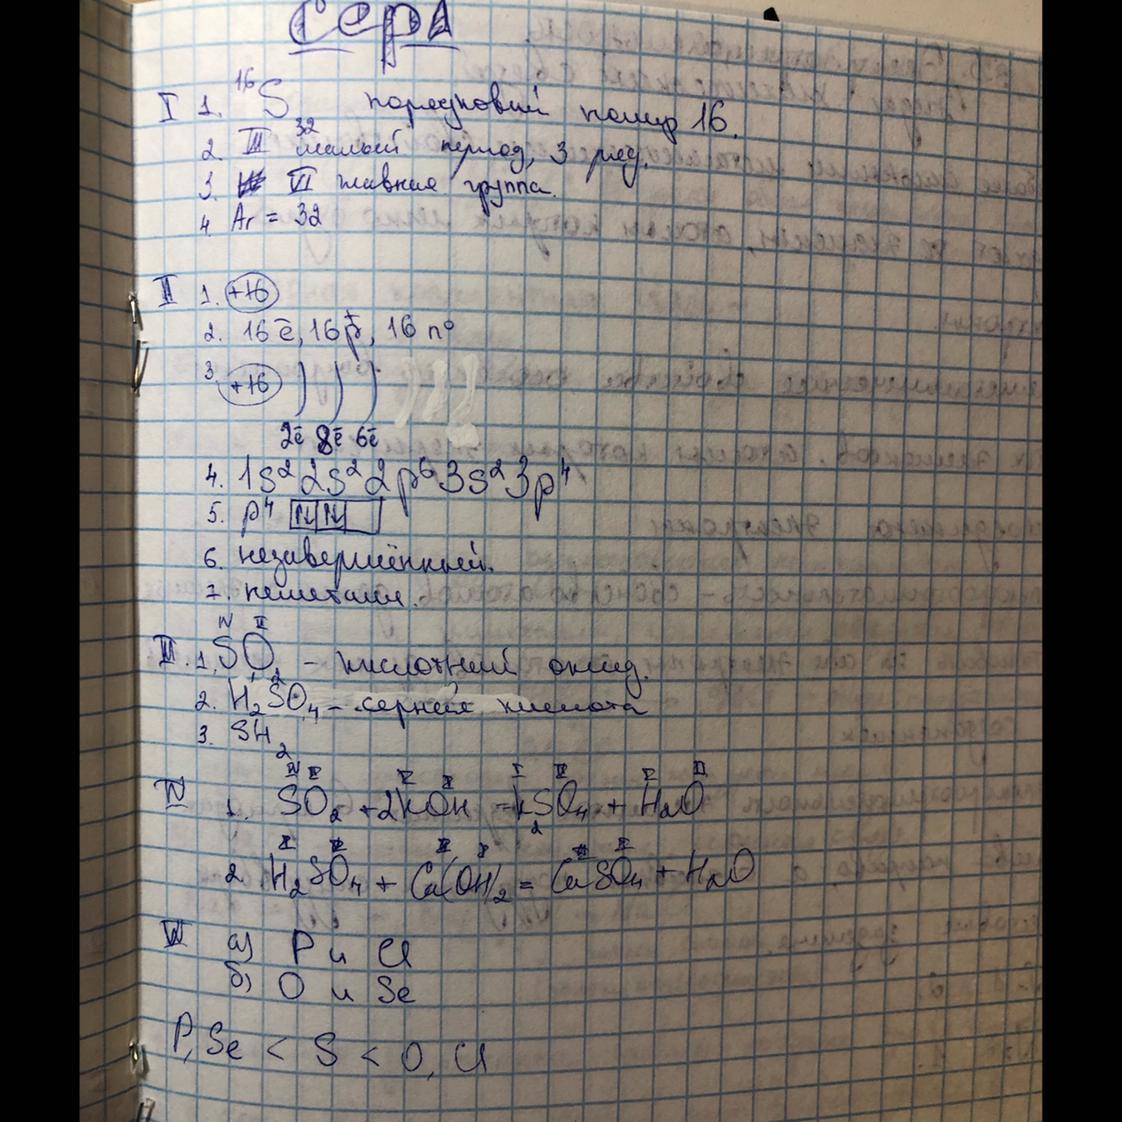 Сера
I 1. 16 S порядковый номер 16.
32
2. III малый период, 3 ряд.
3. VI главная группа.
4. Ar = 32
II 1. +16
2. 16 ē, 16 p⁺, 16 n⁰
3 +16 ) ) )
2ē 8ē 6ē
4. 1s²2s²2p⁶3s²3p⁴
5. p⁴
6. незавершённый.
7. неметалл.
IV II
III. 1. SO₂ - кислотный оксид.
2. H₂SO₄ - серная кислота
3. SH₂
IV 1. SO₂ + 2KOH = K₂SO₄ + H₂O
2. H₂SO₄ + Ca(OH)₂ = CaSO₄ + H₂O
V а) P и Cl
б) O и Se
P, Se < S < O, Cl